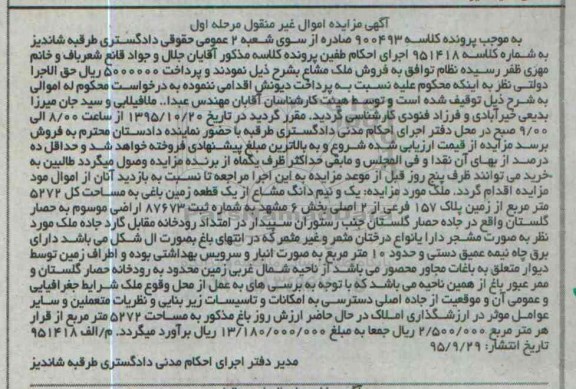 آگهی مزایده اموال غیر منقول مرحله اول
به موجب پرونده کلاسه ۹۰۰۴۹۳ صادره از سوی شعبه ۲ عمومی حقوقی دادگستری طرقبه شاندیز
به شماره کلاسه ۹۵۱۴۱۸ اجرای احکام طفین پرونده کلاسه مذکور آقایان جلال و جواد قانع شعرباف و خانم
مهری ظفر رسیده نظام توافق به فروش ملک مشاع بشرح ذیل نمودند و پرداخت ۵۰۰۰۰۰۰ ریال حق الاجرا
دولتی نظر به اینکه محکوم علیه نسبت به پرداخت دیونش اقدامی ننموده به درخواست محکوم له اموالی
به شرح ذیل توقیف شده است و توسط هیت کارشناسان آقایان مهندس عبدا.. ملافیلابی و سید جان میرزا
بدیعی خیرآبادی و فرزاد فنودی کارشناسی گردید. مقرر گردید در تاریخ ۱۳۹۵/۱۰/۲۰ از ساعت ۸/۰۰ الی
۹/۰۰ صبح در محل دفتر اجرای احکام مدنی دادگستری طرقبه با حضور نماینده دادستان محترم به فروش
برسد مزایده از قیمت ارزیابی شده شروع و به بالاترین مبلغ پیشنهادی فروخته خواهد شد و حداقل ده
درصد از بهای آن نقدا و فی المجلس و مابقی حداکثر ظرف یکماه از برنده مزایده وصول میگردد طالبین به
خرید می توانند ظرف پنج روز قبل از موعد مزایده به این اجرا مراجعه تا نسبت به بازدید آنان از اموال مود
مزایده اقدام گردد. ملک مورد مزایده: یک و نیم دانگ مشاع از یک قطعه زمین باغی به مساحت کل ۵۲۷۲
متر مربع از زمین پلاک ۱۵۷ فرعی از ۲ اصلی بخش ۶ مشهد به شماره ثبت ۸۷۶۷۳ اراضی موسوم به حصار
گلستان واقع در جاده حصار گلستان جنب رستوران سپیدار در امتداد رودخانه مقابل کارد جاده ملک مورد
نظر به صورت مشجر دارا بانواع درختان مثمر و غیر مثمر که در انتهای باغ بصورت ال شکل می باشد دارای
برق چاه نیمه عمیق دستی و حدود ۱۰ متر مربع به صورت انبار و سرویس بهداشتی بوده و اطراف زمین توسط
دیوار متعلق به باغات مجاور محصور می باشد از ناحیه شمال غربی زمین محدود به رودخانه حصار گلستان و
ممر عبور باغ از همین ناحیه می باشد که با توجه به بررسی های به عمل از محل وقوع ملک شرایط جغرافیایی
و عمومی آن و موقعیت از جاده اصلی دسترسی به امکانات و تاسیسات زیر بنایی و نظریات متعملین و سایر
عوامل موثر در ارزشگذاری املاک در حال حاضر ارزش روز باغ مذکور به مساحت ۵۲۷۲ متر مربع از قرار
هر متر مربع ۲/۵۰۰/۰۰۰ ریال جمعا به مبلغ ۱۳/۱۸۰/۰۰۰/۰۰۰ ریال برآورد میگردد. م/الف ۹۵۱۴۱۸
تاریخ انتشار: ۹۵/۹/۲۹
مدیر دفتر اجرای احکام مدنی دادگستری طرقبه شاندیز